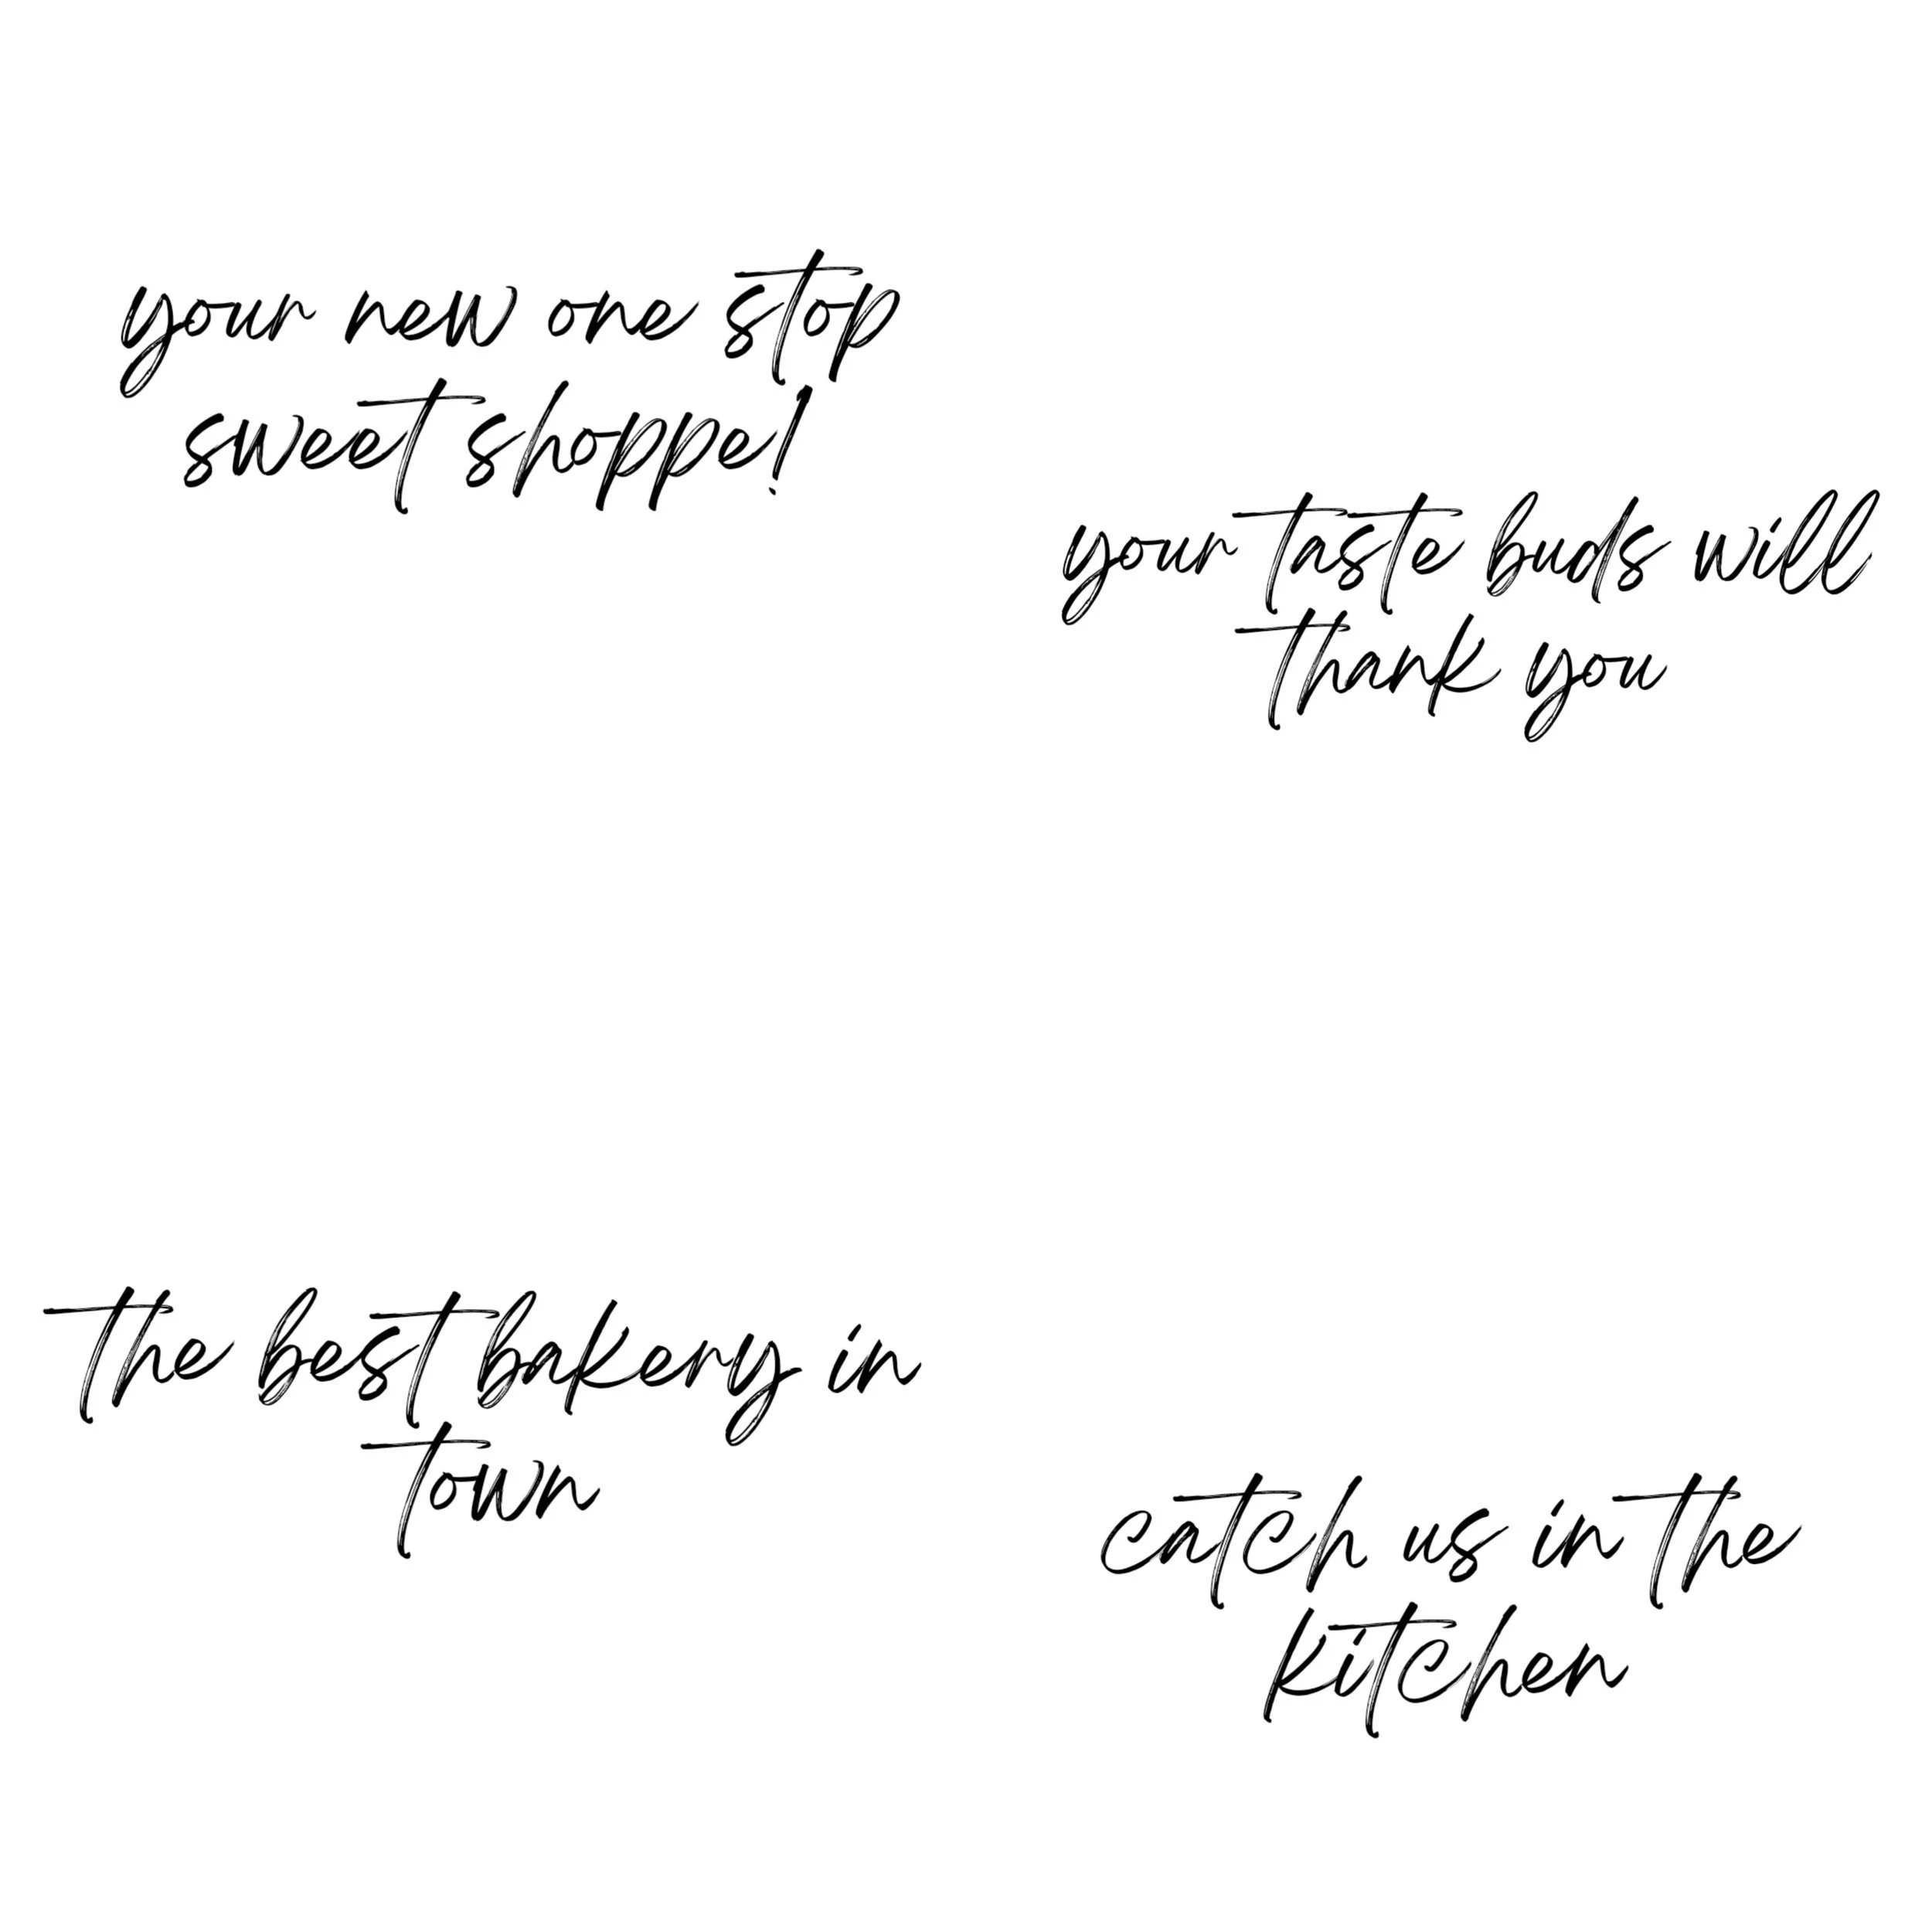 your new one stop
sweet shoppe!
your taste buds will
thank you
the best bakery in
town
catch us in the
kitchen